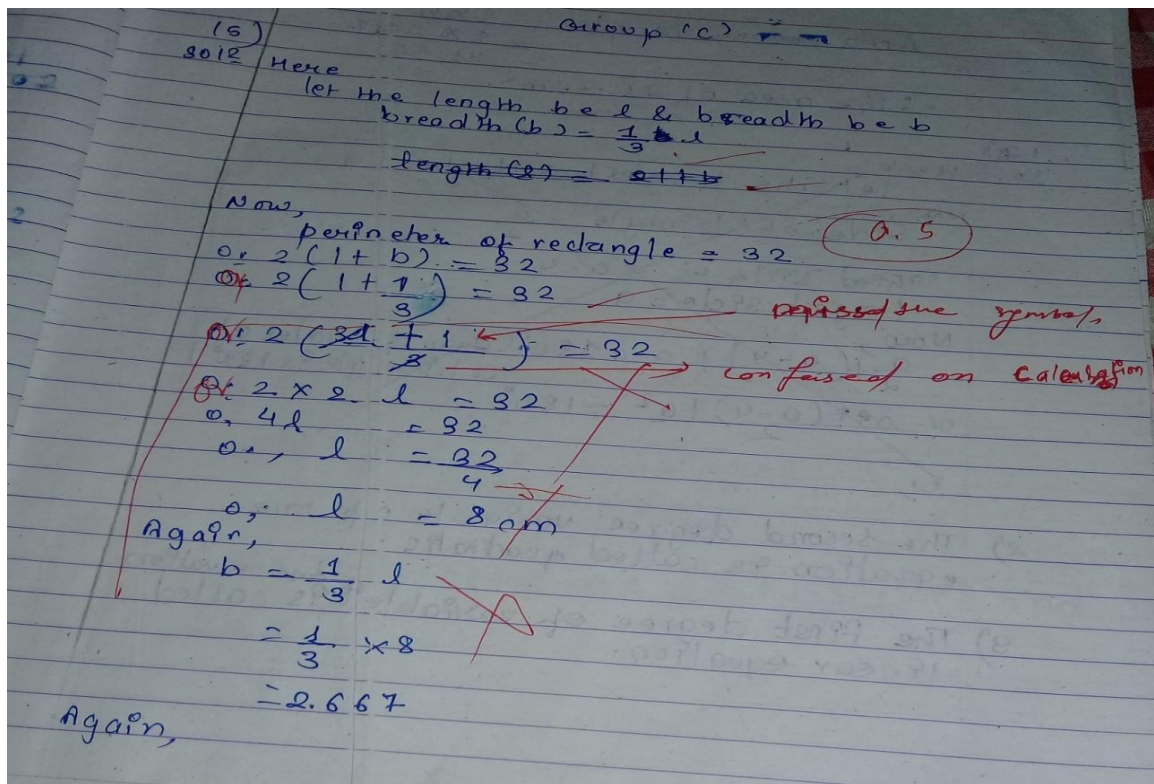 Group (c)
(5)
Soln Here
let the length be l & breadth be b
breadth (b) = 1/3 l
length (l) =
Now,
perimeter of rectangle = 32
0.5
or 2 (l + b) = 32
or 2 (l + 1/3) = 32
symbol,
or 2 (3l + 1 / 3) = 32
confused on calculation
or 2 x 2 l = 32
o, 4l = 32
o., l = 32/4
o, l = 8 cm
Again,
b = 1/3 l
= 1/3 x 8
= 2.667
Again,